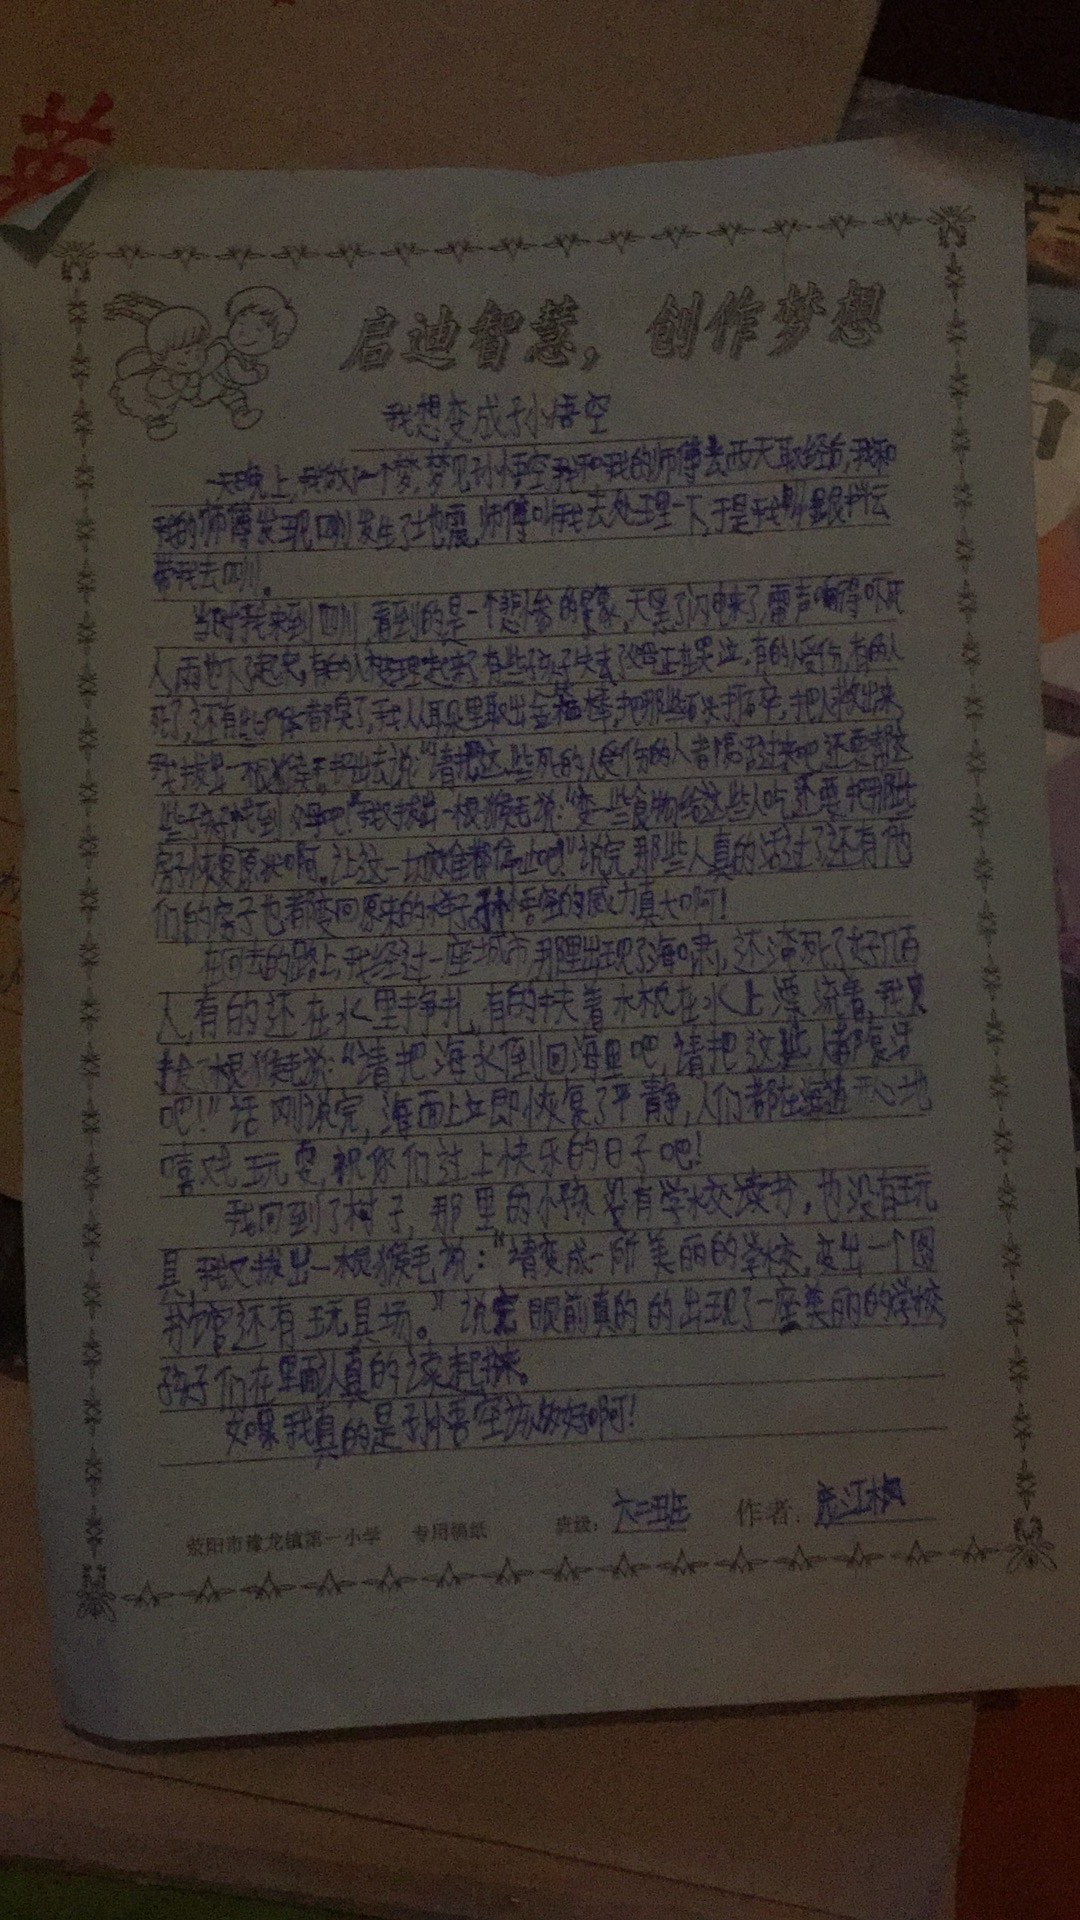 启迪智慧，创作梦想
我想变成孙悟空
一天晚上，我做了一个梦，梦见孙悟空我和我的师傅去西天取经后，我和
我的师傅发现四川发生了地震，师傅叫我去处理一下，于是我
带我去四川。
当时我来到四川，看到的是一个悲惨的景象，天黑了闪电来了，雷声响得吓死
人，雨也下了起来，有的人被埋起来了有些孩子失去了父母正在哭泣，有的人受伤，有的人
死了，还有些，我从耳朵里取出金箍棒，把那些石头打碎，把人救出来
我拔出一根猴毛，出去说：“请把这些死的人受伤的人都活过来吧，还要帮这
些孩子找到父母吧！”我拔出一根猴毛说：“变一些食物给这些人吃，还要把那些
房子恢复原状啊，让这一切灾难都停止吧！”说完，那些人真的活过了还有他
们的房子也都变回原来的样子。孙悟空的威力真大啊！
在回去的路上，我经过一座城市，那里出现了海啸，还淹死了好几百
人，有的还在水里挣扎，有的扶着木板在水上漂流着，我又
根猴毛说：“请把海水倒回海里吧，请把这些人都复活
吧！”话刚说完，海面上立即恢复了平静，人们都在海边开心地
嘻戏玩耍，祝你们过上快乐的日子吧！
我回到了村子，那里的小孩没有学校读书，也没有玩
具，我又拔出一根猴毛说：“请变成一所美丽的学校，变出一个图
书馆还有玩具场。”说完眼前真的的出现了一座美丽的学校
孩子们在里面认真的读起书来。
如果我真的是孙悟空该多好啊！
荥阳市豫龙镇第一小学 专用稿纸 班级：六二班 作者：